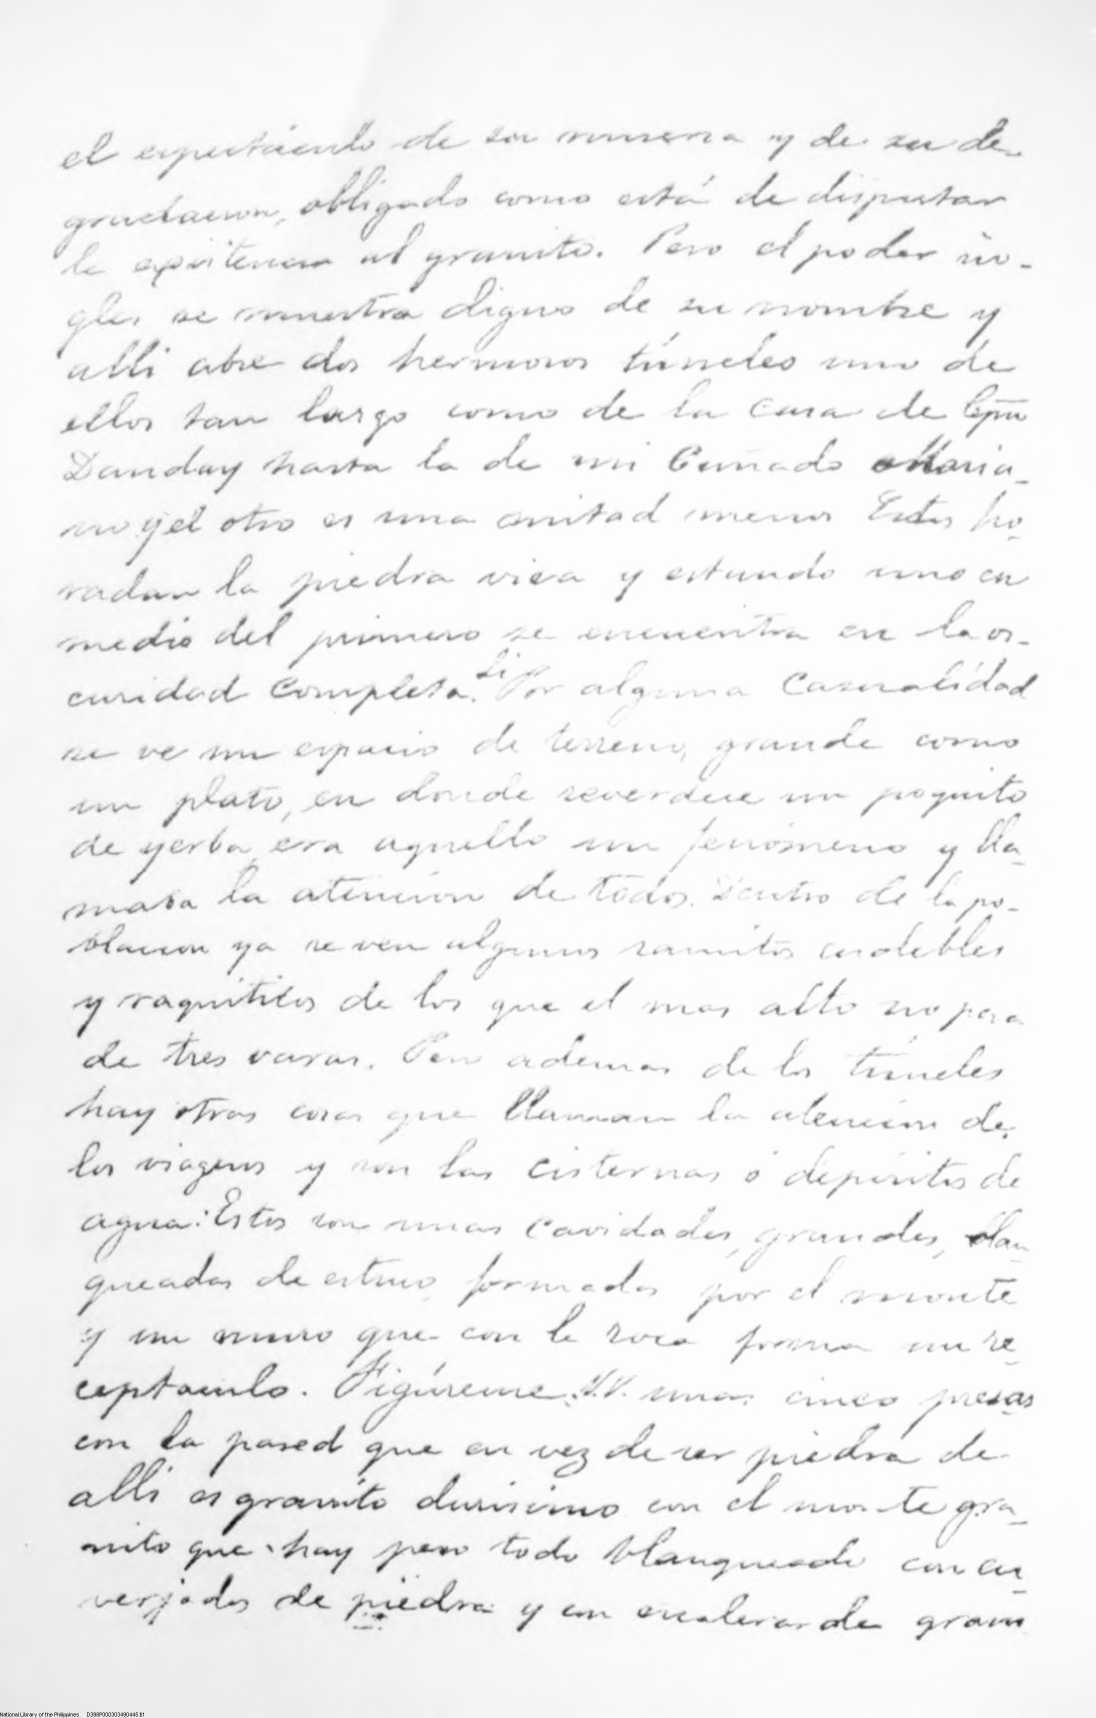 el espectáculo de su miseria y de su de-
gradacion, obligado como está de disputar
la existencia al granito. Pero el poder in-
gles se muestra digno de su nombre y
alli abre dos hermosos túneles uno de
ellos tan largo como de la casa de Cpña
Danday hasta la de mi Cuñado Maria-
no y el otro es una mitad menos Estos ho-
radan la piedra viva y estando uno en
medio del primero se encuentra en la os-
curidad completa. Si Por alguna Casualidad
se ve un espacio de terreno, grande como
un plato, en donde reverdece un poquito
de yerba era aquello un fenómeno y lla-
maba la atencion de todos. Dentro de la po-
blacion ya se ven algunos ramitos endebles
y raquiticos de los que el mas alto no pasa
de tres varas. Pero ademas de los túneles
hay otras cosas que llaman la atencion de
los viageros y son las cisternas ó depósitos de
agua: Estos son unas cavidades, grandes, blan-
queadas de estuco formadas por el monte
y un muro que con la roca forma un re-
ceptaculo. Figúrense V.V. unas cinco presas
con la pared que en vez de ser piedra de
alli es granito durisimo con el monte gra-
nito que hay pero todo blanqueado con en-
verjados de piedra y con escaleras de grani
National Library of the Philippines